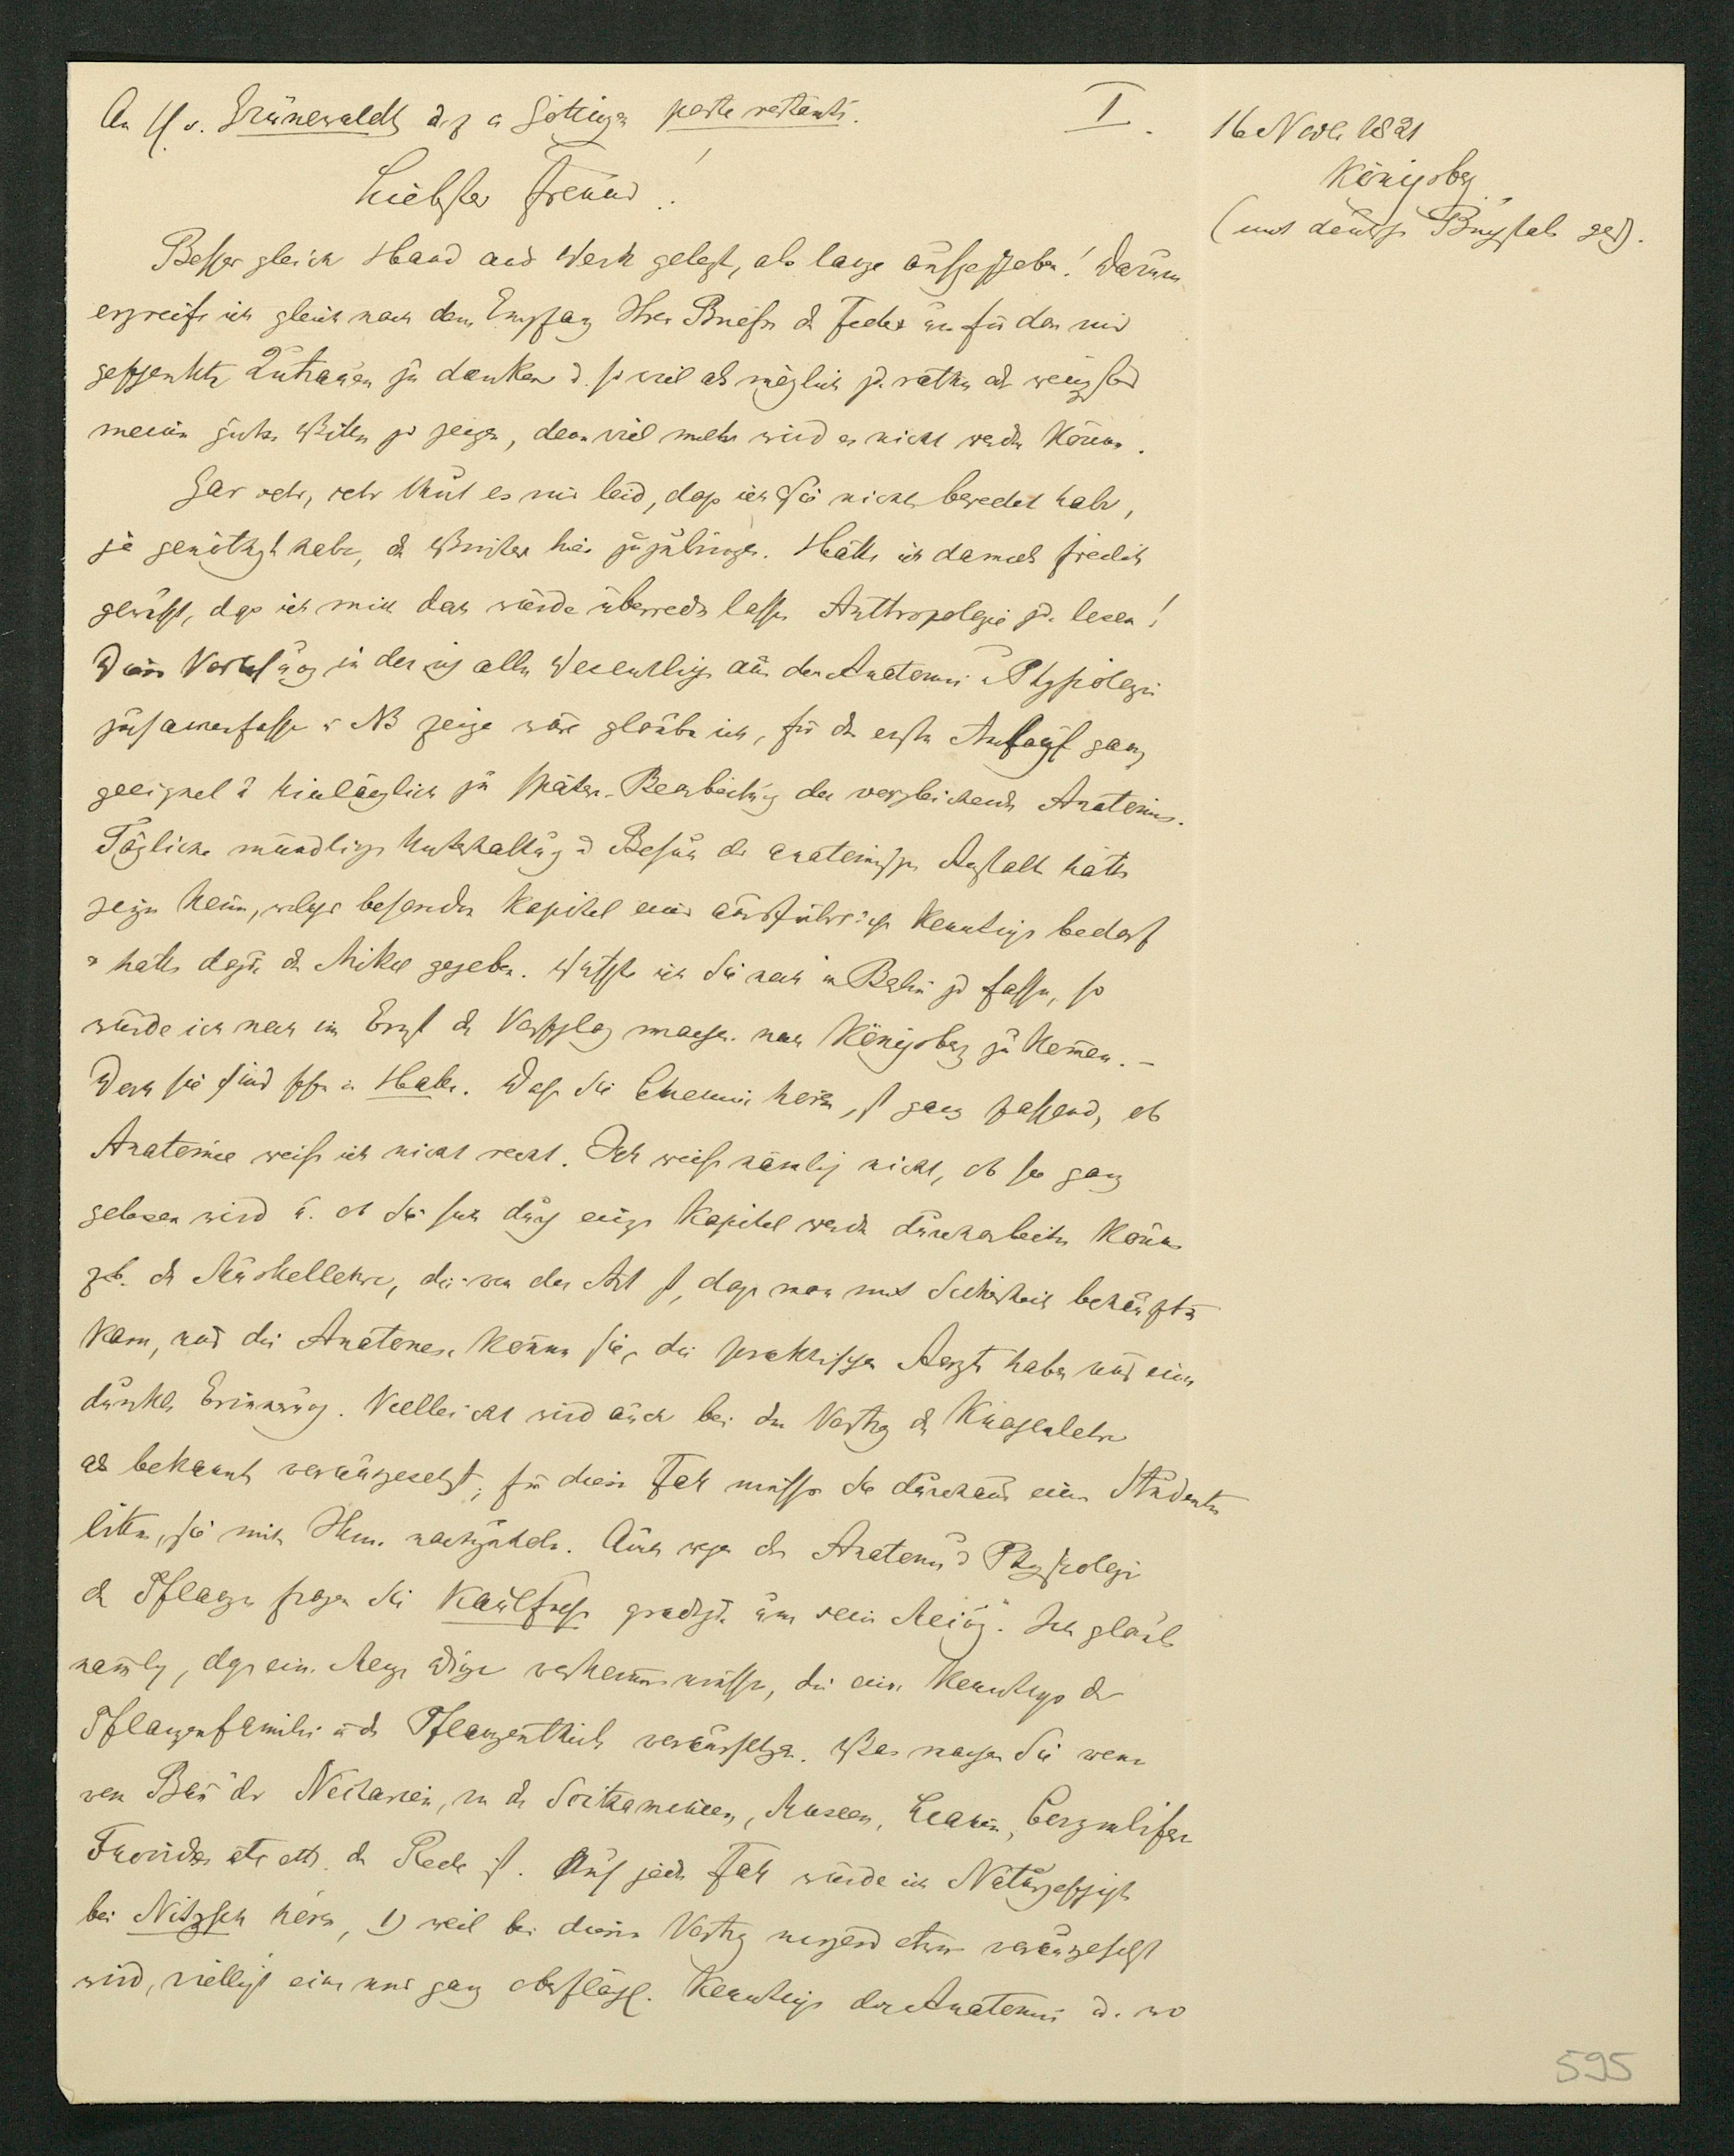 An H. v. Grünewaldt d. z. in Göttingen poste restante.
I.
16 Novbr 1821
Königsberg
(mit deutsch Buchstab gesch).
Liebster Freund!
Besser gleich Hand ans Werk gelegt, als lange aufgeschoben! Darum
ergreife ich gleich nach dem Empfang Ihres Briefes die Feder um für das mir
geschenkte Zutrauen zu danken u. so viel als möglich zu rathen od. wenigstens
meinen guten Willen zu zeigen, denn viel mehr wird es nicht werden können.
Gar sehr, sehr thut es mir leid, dass ich Sie nicht beredet habe,
ja genöthigt habe, den Winter hier zuzubringen. Hätte ich damals freilich
gewusst, dass ich mich doch würde überreden lassen Anthropologie zu lesen!
Diese Vorlesung in der ich alles Wesentliche aus der Anatomie u Physiologie
zusammenfasse u NB zeige wäre glaube ich, für den ersten Anlauf ganz
geeignet u hinlänglich zu späterer Bearbeitung der vergleichenden Anatomie.
Tägliche mündliche Unterhaltung u Besuch der anatomischen Anstalt hätte
zeigen können, welches besondere Kapitel eine ausführliche Kenntniss bedarf
u hätte dazu die Mittel gegeben. Wüsste ich Sie noch in Berlin zu fassen, so
würde ich noch im Ernst den Vorschlag machen nach Königsberg zu kommen. –
Doch Sie sind schon in Halle. Dass Sie Chemie hören, ist ganz passend, ob
Anatomie weiss ich nicht recht. Ich weiss nämlich nicht, ob sie ganz
gelesen wird u. ob Sie sich durch einige Kapitel werden durcharbeiten können
zb. die Muskellehre, die von der Art ist, dass man mit Sicherheit behaupten
kann, nur die Anatomen kennen sie, die praktischen Aerzte haben nur eine
dunkle Erinnerung. Vielleicht wird auch bei dem Vortrag die Knochenlehre
als bekannt vorausgesetzt; für diesen Fall müssen Sie durchaus einen Studenten
bitten, sie mit Ihnen nachzuholen. Auch wegen der Anatomie u Physiologie
der Pflanzen fragen Sie Kaulfuss gradezu um seine Meinung. Ich glaube
nämlich, dass eine Menge Dinge vorkommen müssen, die eine Kenntniss der
Pflanzenfamilien u der Pflanzentheile voraussetzen. Was machen Sie wenn
vom Bau der Nectarien, von den Scitamineen, Museen, Lianen,
etc etc. die Rede ist. Auf jeden Fall würde ich Naturgeschichte
bei Nitzsch hören, 1) weil bei diesem Vortrag nirgend etwas vorausgesetzt
wird, vielleicht eine nur ganz oberflächl. Kenntniss der Anatomie u. wo
595